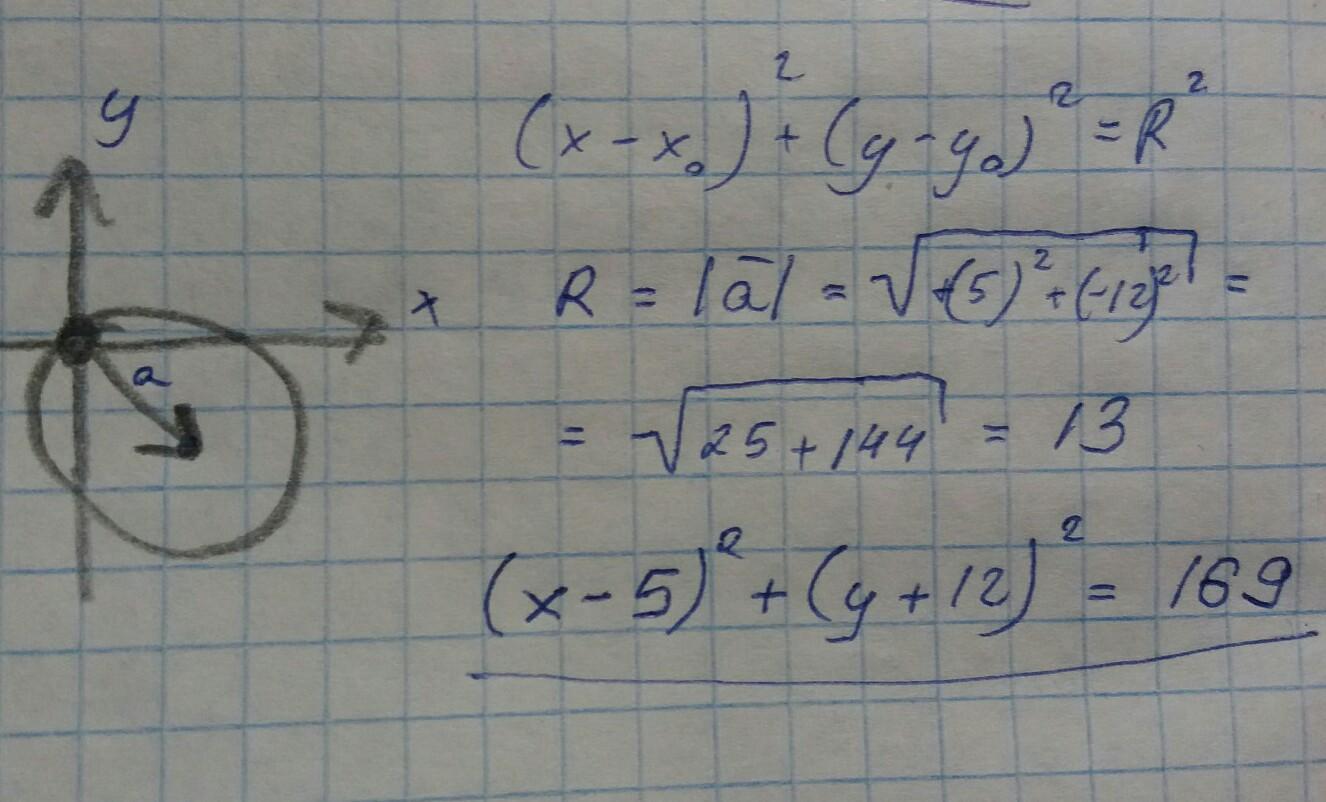 y
(x - x₀)² + (y - y₀)² = R²
x
R = |a̅| = √((5)² + (-12)²) =
a
= √(25 + 144) = 13
(x - 5)² + (y + 12)² = 169